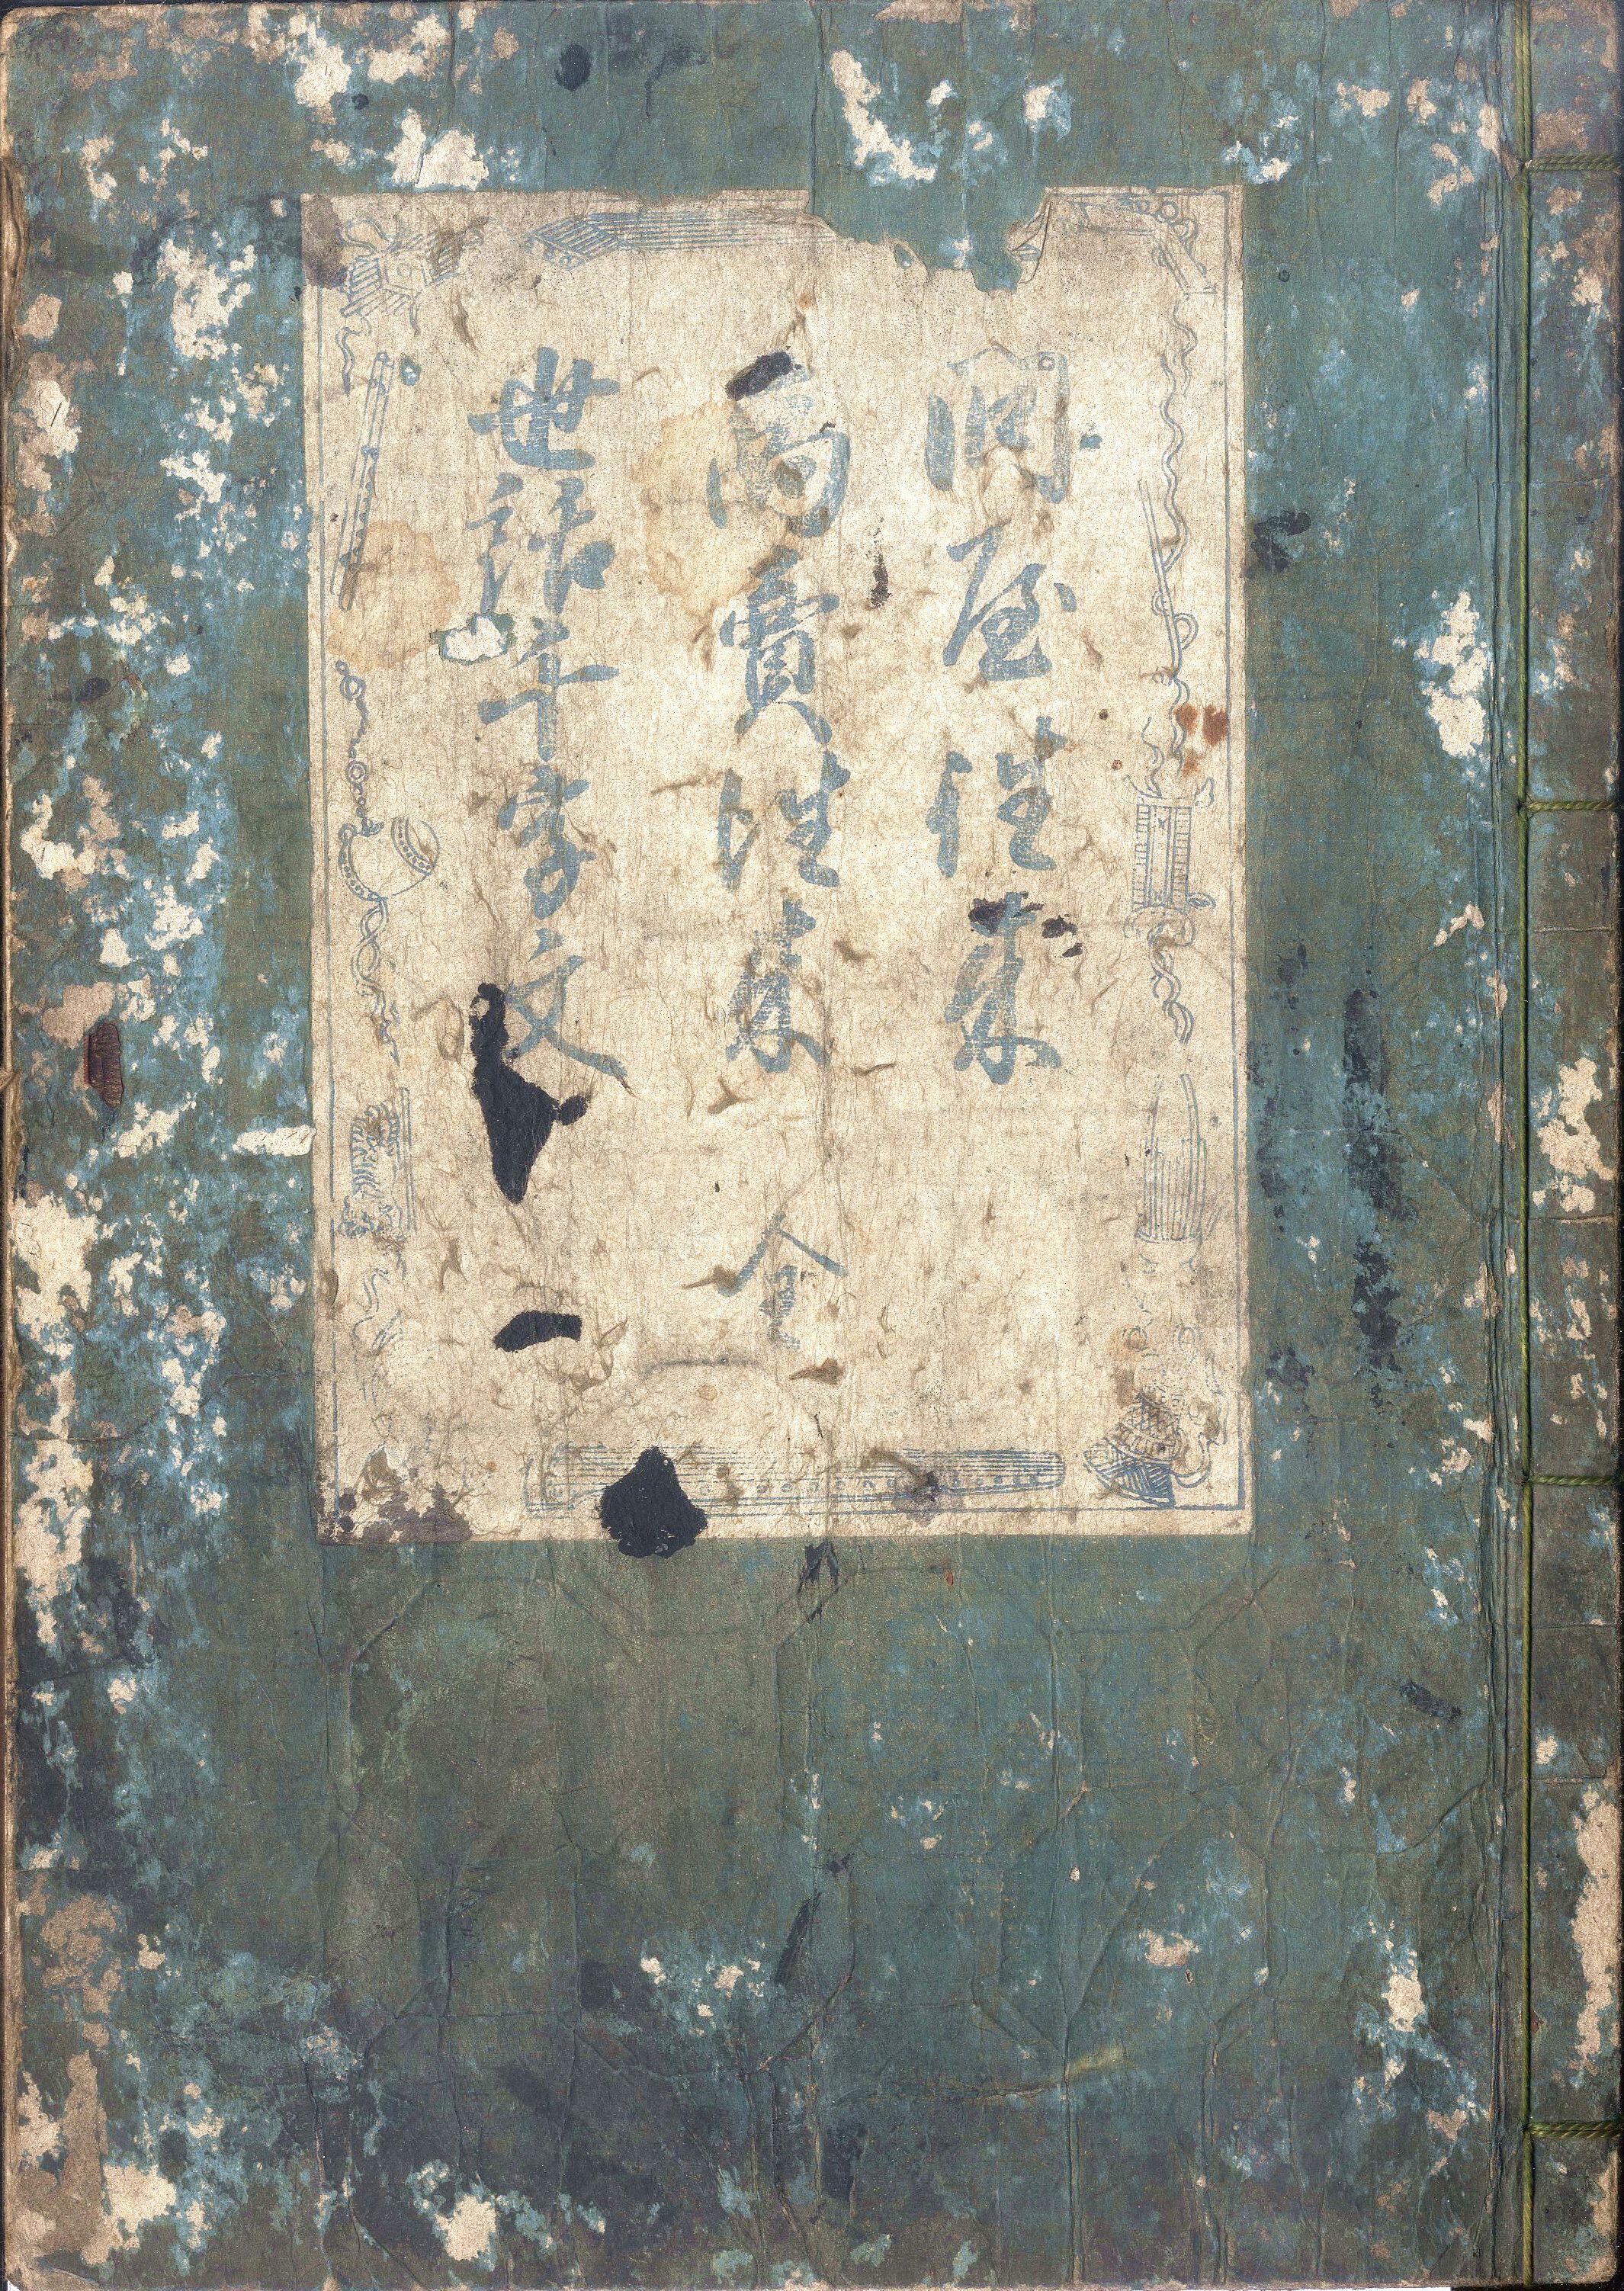 問屋往来
商賣往来
全
世話千字文